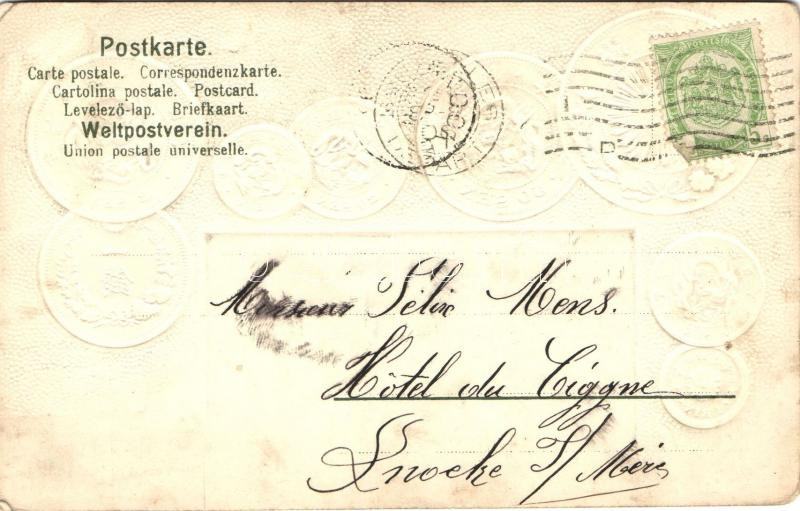 Postkarte.
Carte postale. Correspondenzkarte.
Cartolina postale. Postcard.
Levelező-lap. Briefkaart.
Weltpostverein.
Union postale universelle.
Monsieur Félix Mens.
Hôtel du Ciggne
Knocke S/ Mer